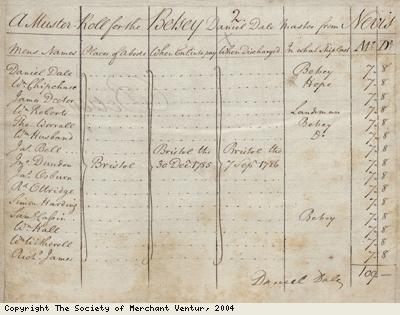 A Muster Roll for the Betsey Daniel Dale Master from Nevis
2
Mens Names Places of Abode When Enter'd to pay When Discharged In what Ship Cast Mo: D:
Daniel Dale Betsey 7 8
Wm Chipchase Hope 7 8
James Doctor 7 8
Wm Roberts Landsman 7 8
Tho. Worrall Betsey 7 8
Wm Husband Do 7 8
Jas. Bell Bristol the Bristol the 7 8
Jno. Dundon Bristol 30 Decr 1785 7 Sepr 1786 7 8
Jas. Osburn 7 8
Rd Ottridge 7 8
Simon Harding 7 8
Saml Betsey 7 8
Wm Hall 7 8
Wm Witherell 7 8
Richd James 7 8
109 —
Daniel Dale
Copyright The Society of Merchant Ventur, 2004